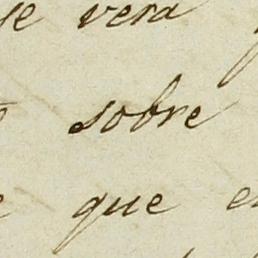 se vera
sobre
que